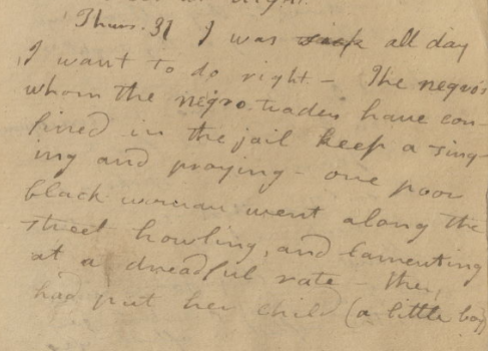 at night.
Thurs. 31 I was sick all day
I want to do right - The negro's
whom the negro-traders have con-
fined in the jail keep a sing-
ing and praying - one poor
black woman went along the
street howling, and lamenting
at a dreadful rate - they
had put her child (a little boy)